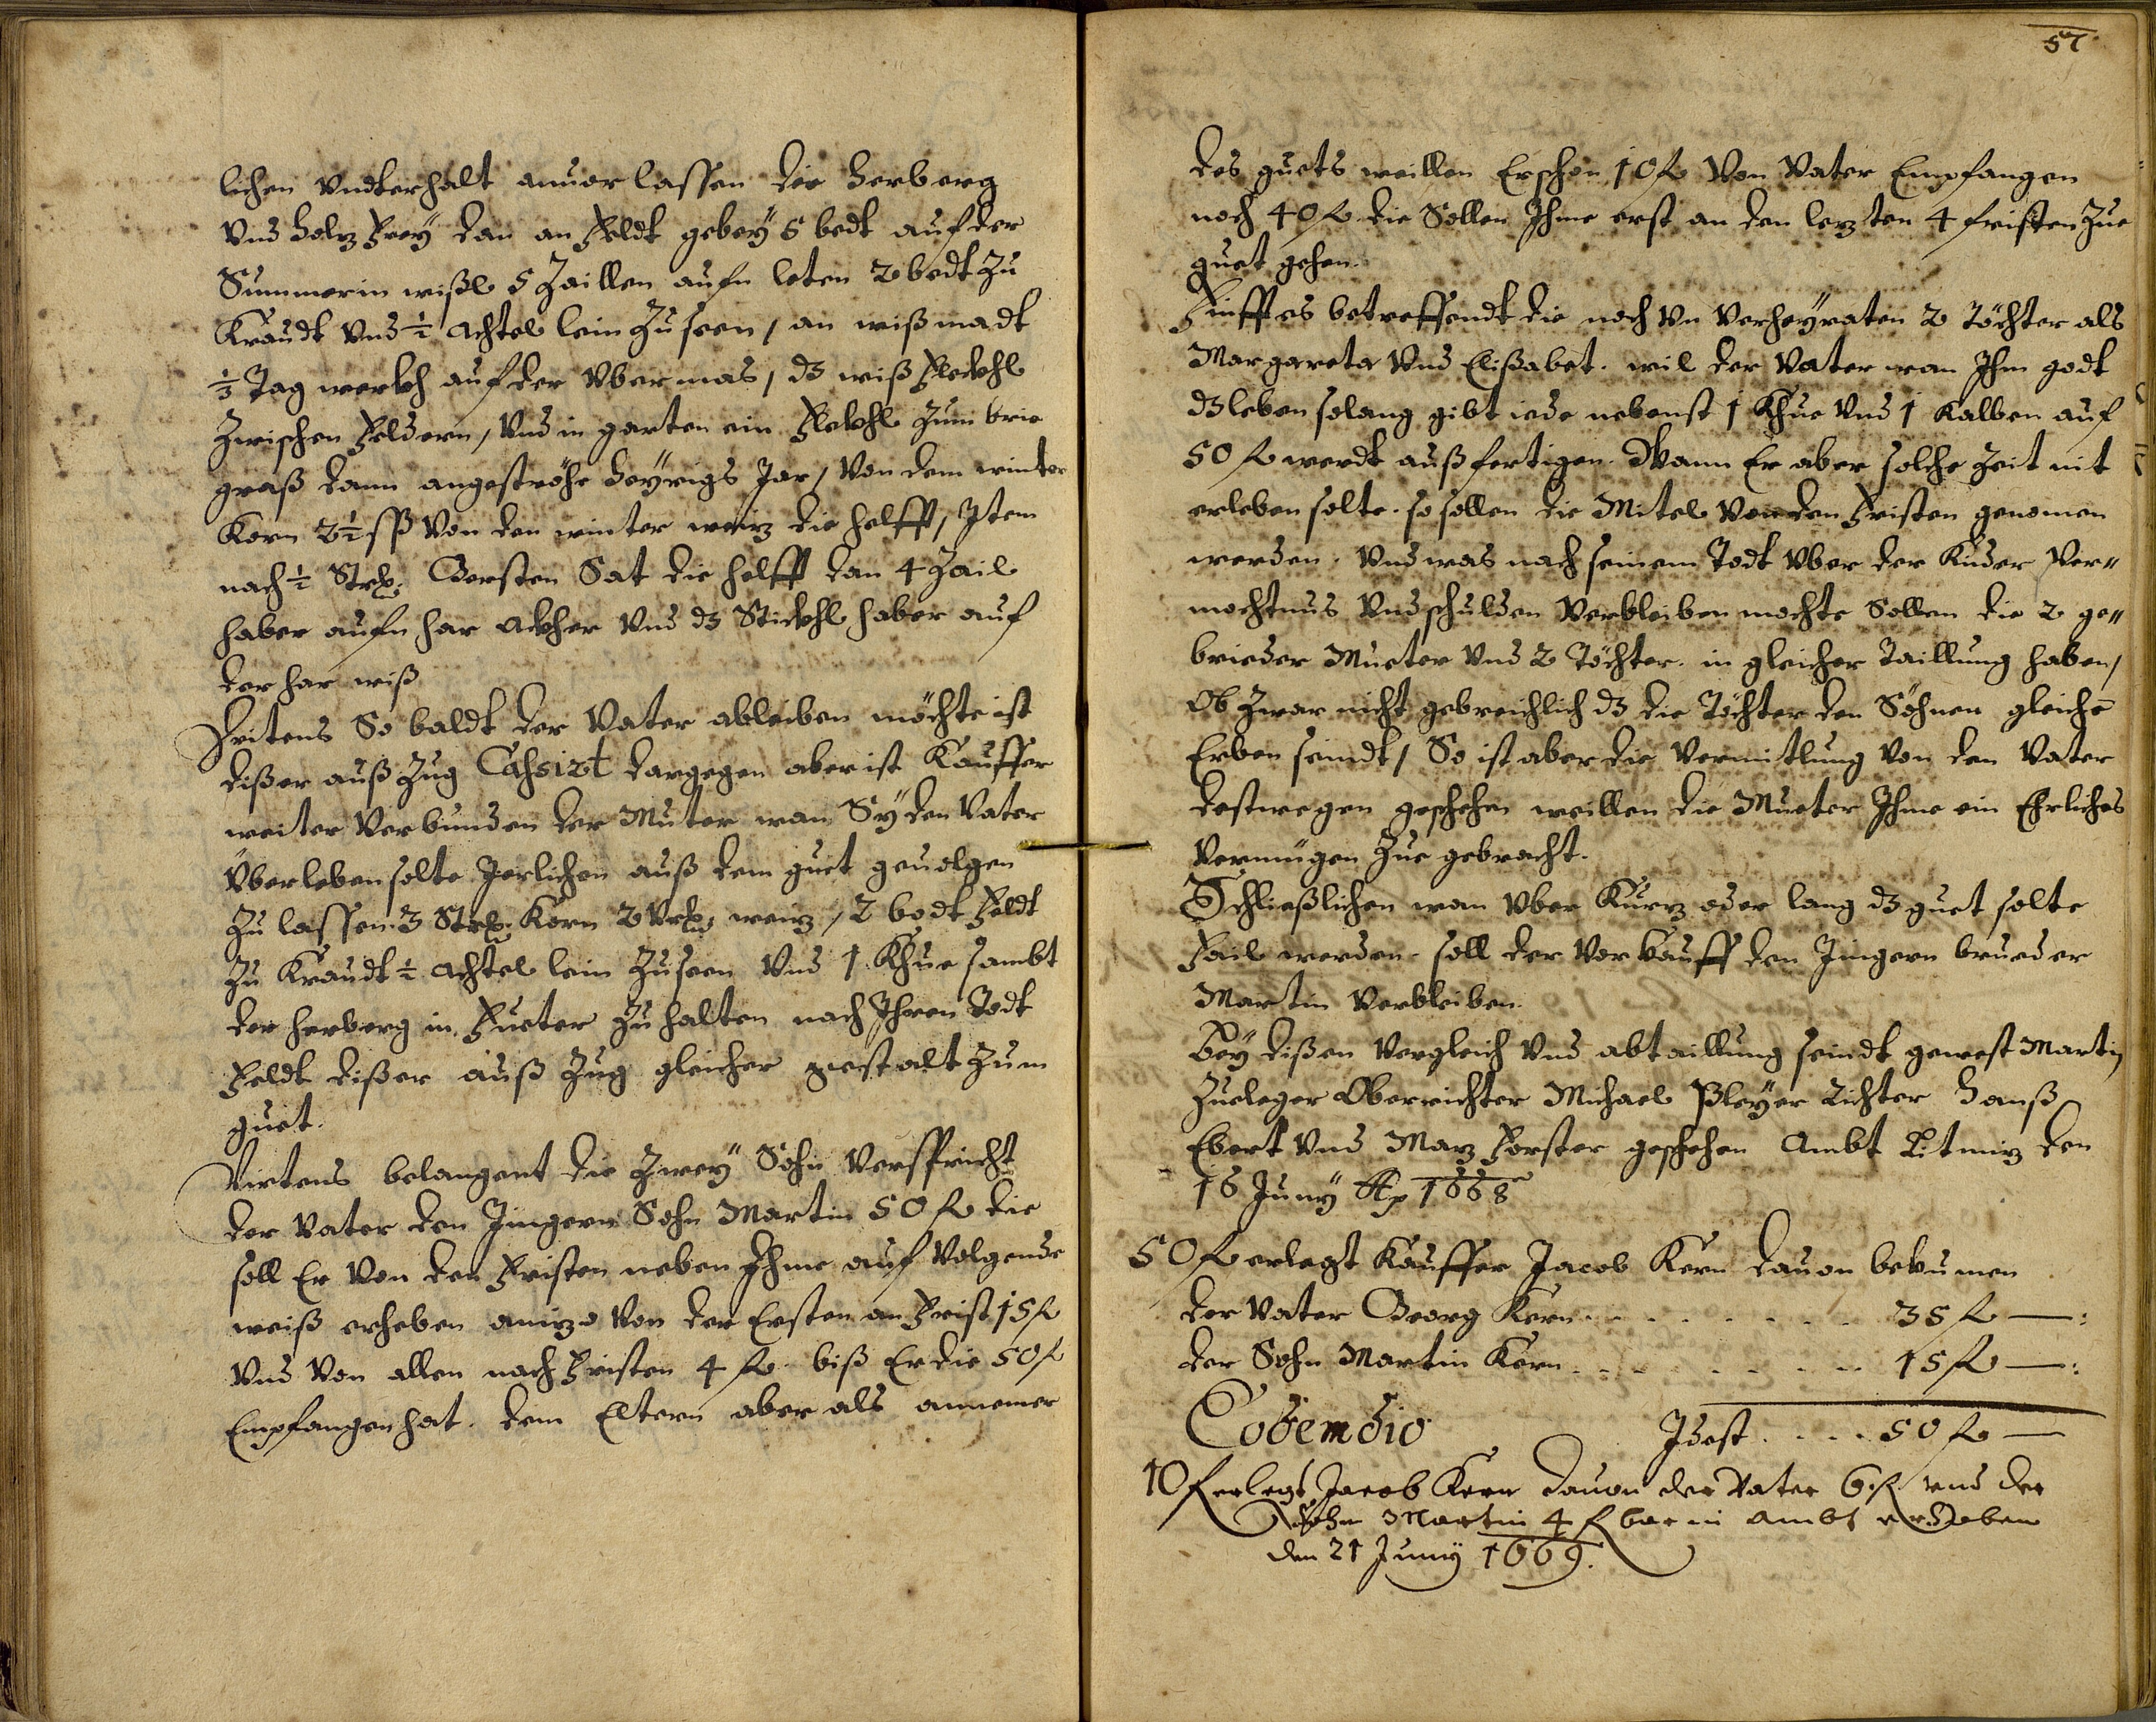 lichen Vndterhalt anuor lassen die Herberg
Vnd Holz Frey dan an Feldt gebey 6 bedt auf der
Summerin wißl 5 Zaillen aufn leten 2 bedt Zu
Kraudt Vnd ½ Achtel lein Zu seen / an wißmadt
½ Tag werkh auf der Vbermas / dz wiß Flekhl
Zwischen Feldern / Vnd in garten ein Flekhl Zum brie
graß dann angeströhe Heyrigs Jar / Von dem winter
Korn 2½ ßß Von den winter weiz die helfft / Item
nach ½ Strh: Gersten Sat die helfft dan 4 Zail
haber aufn har Akher Vnd dz Stickhl haber auf
der har wiß
Dritens So baldt der Vater ableiben möchte ist
dißer auß Zug Cahsirt dargegen aber ist Kauffer
weiter Verbunden der Muter wan Sy den Vater
Vberleben solte Jerlichen auß dem guet geuolgen
Zu lassen 3 Strh: Korn 2 Vrh: weiz / 2 bedt Feldt
Zu Kraudt ½ Achtel lein Zu seen Vnd 1 Khue sambt
der herberg in Fueter Zu halten nach Ihren Todt
Feldt dißer auß Zug gleicher gestalt Zum
guet.
Virtens belangent die Zwey Sohn Verspricht
der Vater den Jüngern Sohn Martin 50 fl die
soll Er Von den Fristen neben Ihme auf Volgende
weiß erheben aniezo Von der Ersten an Frist 15 fl
Vnd Von allen nach Fristen 4 fl biß Er die 50 fl
Empfangen hat. dem Eltern aber als annemer
57
des guets weillen Er schon 10 fl Von Vater Empfangen
noch 40 fl die Sollen Ihme erst an den lezten 4 fristen Zue
guet gehen.
Finfftes betreffendt die noch Vn Verheyraten 2 Töchter als
Margareta Vnd Elißabet. wil der Vater wan Ihm godt
dz leben solang gibt iede nebenst 1 Khue Vnd 1 Kalben auf
50 fl werdt auß fertigen. Wann Er aber solche Zeit nit
erleben solte. so sollen die Mitel Von den Fristen genomen
werden. Vnd was nach seinem Todt Vber der Kinder Ver"
mechtnus Vnd schulden Verbleiben mochte Sollen die 2 ge"
brieder Mueter Vnd 2 Töchter. in gleicher Taillung haben /
Ob Zwar nicht gebreichlich dz die Töchter den Söhnen gleiche
Erben seindt / So ist aber die Vermitlung Von den Vater
destwegen geschehen weillen die Mueter Ihme ein Ehrliches
Vermügen Zue gebracht.
Schließlichen wan Vber Kurz oder lang dz guet solte
Fail werden. soll der Vor Kauff den Jüngern brueder
Martin Verbleiben.
Bey dißen Vergleich Vnd abtaillung seindt gewest Martin
Zueleger Oberrichter Michael Pleyer Richter Hanß
Ebert Vnd Marz Forster geschehen Ambt Litmiz den
16 Juny Ao 1668
50 fl erlegt Kauffer Jacob Kern dauon bekumen
der Vater Georg Kern . . . . . . . . . 35 fl —:
der Sohn Martin Kern . . . . . . . . . 15 fl —:
Eodem dio Idest . . . . 50 fl —
10 fl erlegt Jacob Kern dauon der Vater 6 fl vnd der
Sohn Martin 4 fl bar in Ambt erhoben
den 21 Juny 1669.